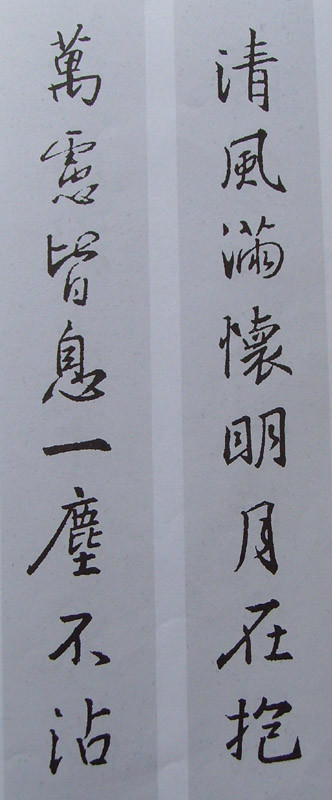 清風滿懷明月在抱
萬慮皆息一塵不沾